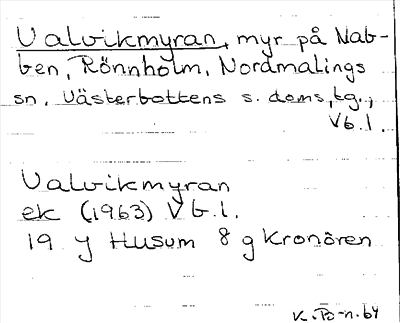 Valvikmyran, myr på Nab-
ben, Rönnholm, Nordmalings
sn, Västerbottens s. doms.tg.,
Vb.l.
Valvikmyran
ek (1963) Vb.l.
19 J Husum 8 g Kronören
K. Po-n. 64